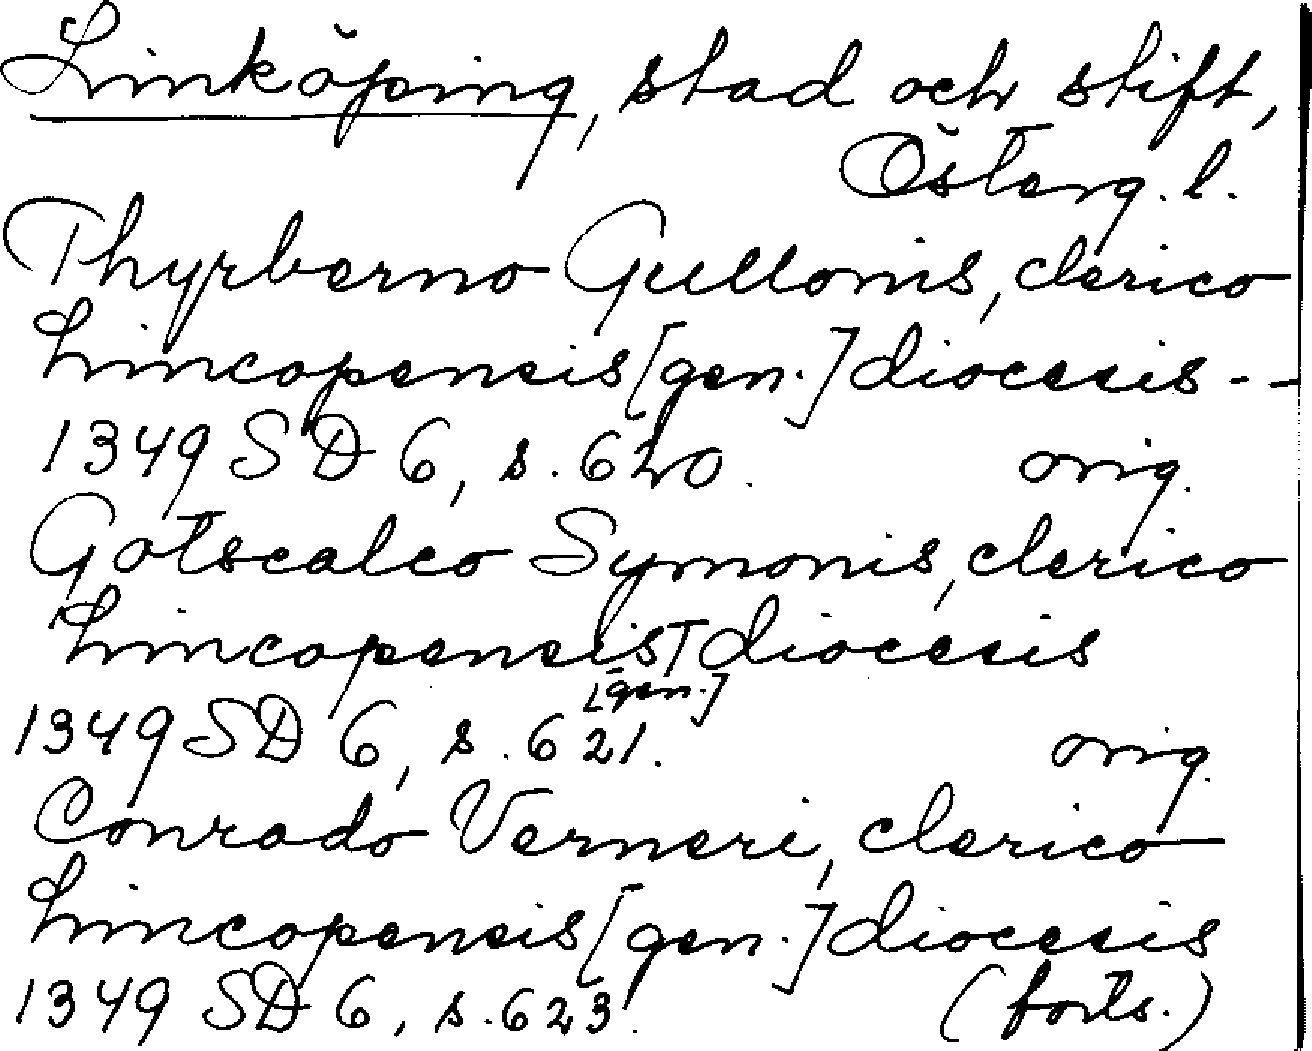 Linköping, stad och stift,
Österg. l.
Thyrberno Gullonis, clerico
Lincopensis [gen.] diocesis - -
1349 SD 6, s. 620. orig.
Gotscalco Symonis, clerico
Lincopensis [gen.] diocesis
1349 SD 6, s. 621. orig.
Conrado Verneri, clerico
Lincopensis [gen.] diocesis
1349 SD 6, s. 623. (forts.)